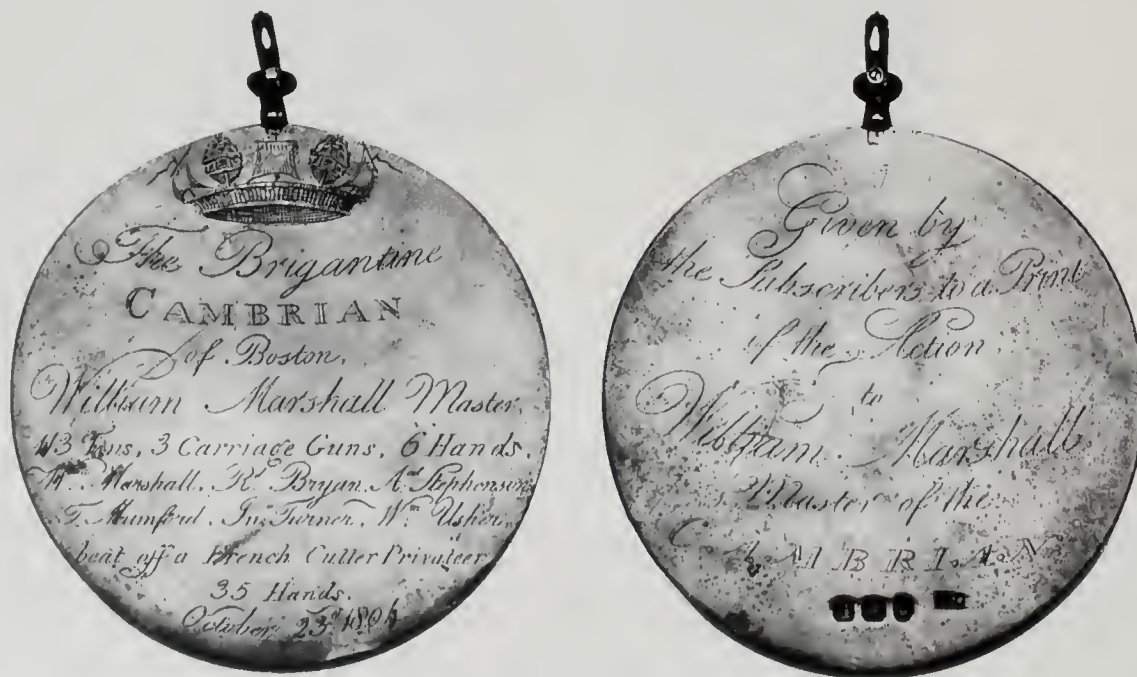 The Brigantine
CAMBRIAN
of Boston,
William Marshall Master,
43 Tons, 3 Carriage Guns, 6 Hands.
Wm Marshall, Rd Bryan, Ad Stephenson
T. Mumford, Jno Turner, Wm Usher,
beat off a French Cutter Privateer
35 Hands.
October 23d
Given by
the Subscribers to a Print
of the Action,
to
William Marshall,
Master of the
CAMBRIAN